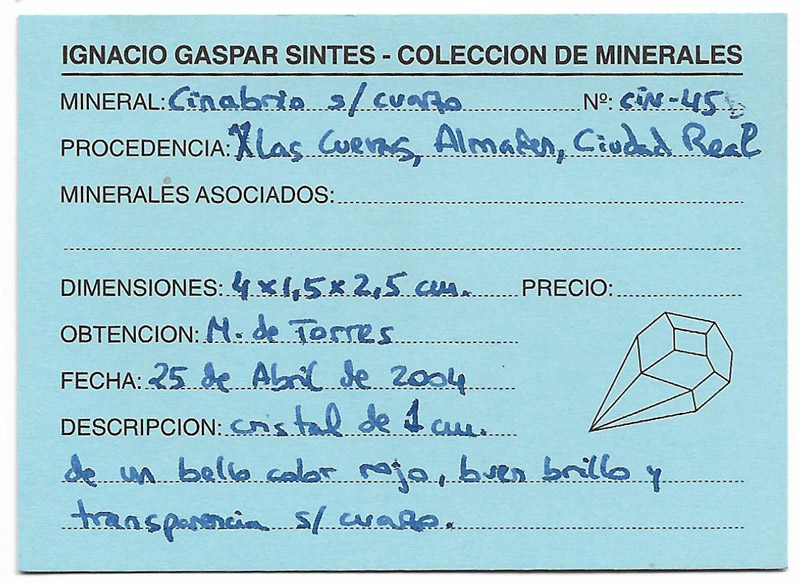 IGNACIO GASPAR SINTES - COLECCION DE MINERALES
MINERAL: Cinabrio s/ cuarzo Nº: CIN-45
PROCEDENCIA: Las Cuevas, Almaden, Ciudad Real
MINERALES ASOCIADOS:
DIMENSIONES: 4 x 1,5 x 2,5 cm. PRECIO:
OBTENCION: M. de Torres
FECHA: 25 de Abril de 2004
DESCRIPCION: cristal de 1 cm.
de un bello color rojo, buen brillo y
transparencia s/ cuarzo.